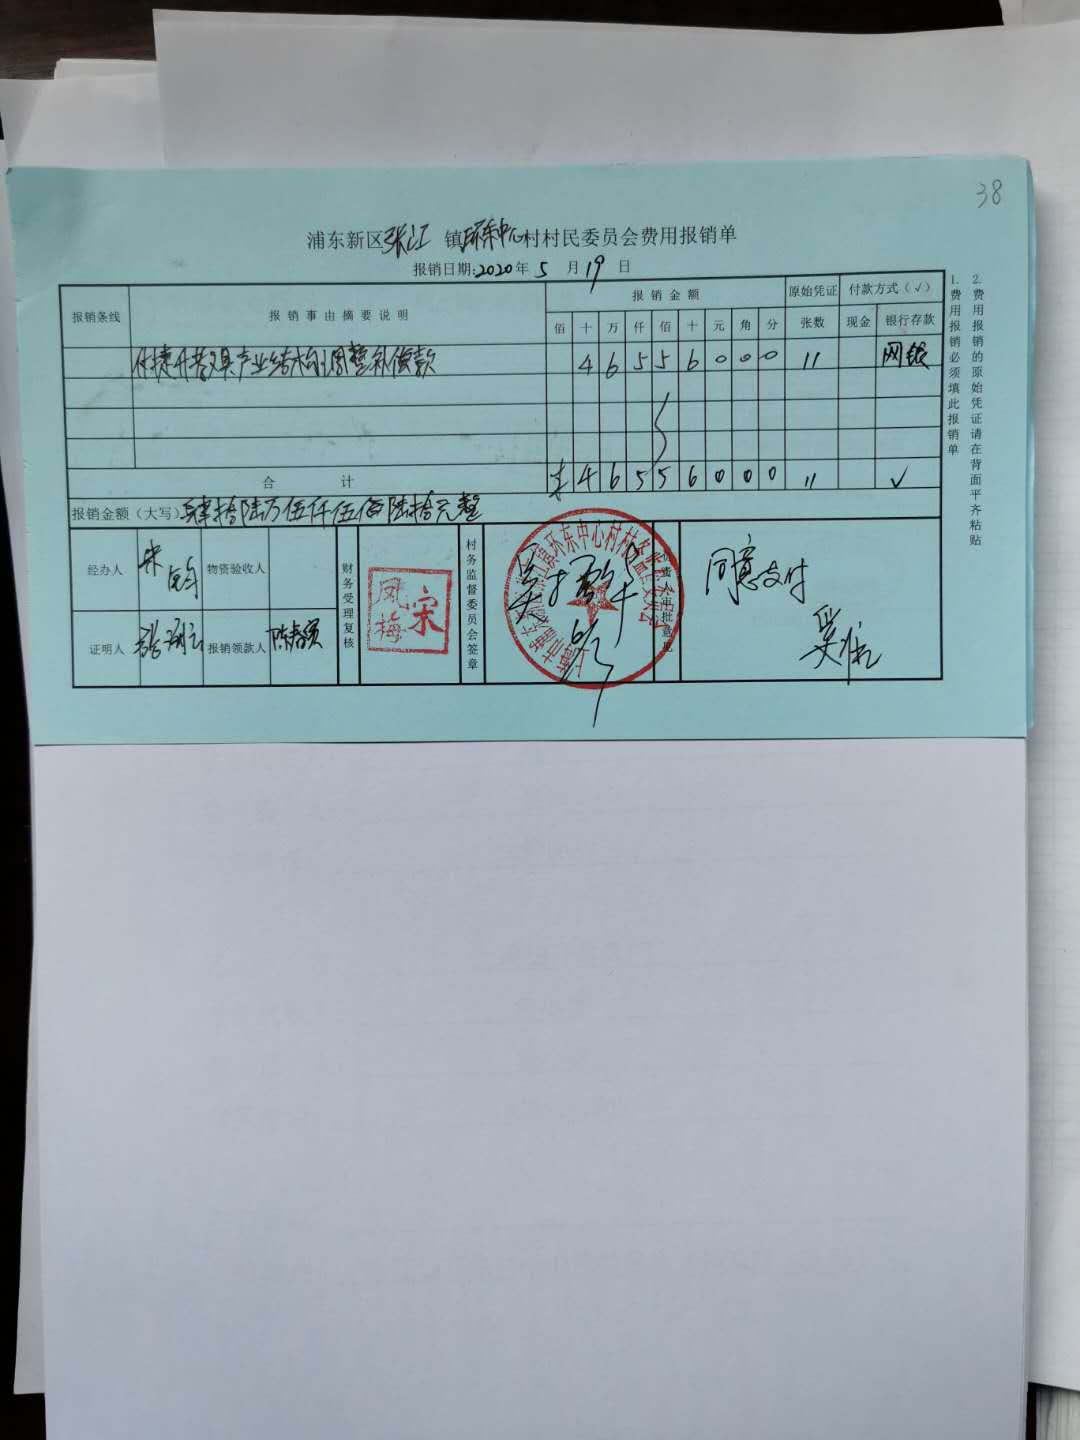 38
浦东新区张江 镇环东中心村村民委员会费用报销单
报销日期:2020年 5 月 19 日
报销条线 报销事由摘要说明 报销金额 原始凭证 付款方式（√）
佰 十 万 仟 佰 十 元 角 分 张数 现金 银行存款
付捷升教具产业结构调整补偿款 4 6 5 5 6 0 0 0 11 网银
合 计 ¥ 4 6 5 5 6 0 0 0 11 √
报销金额（大写）肆拾陆万伍仟伍佰陆拾元整
经办人 朱 物资验收人 财务受理复核 宋凤梅 村务监督委员会签章 审批意见 同意支付
证明人 张 报销领款人 陈 吴
环东中心村村务监督委员会
1.费用报销必须填此报销单
2.费用报销的原始凭证请在背面平齐粘贴